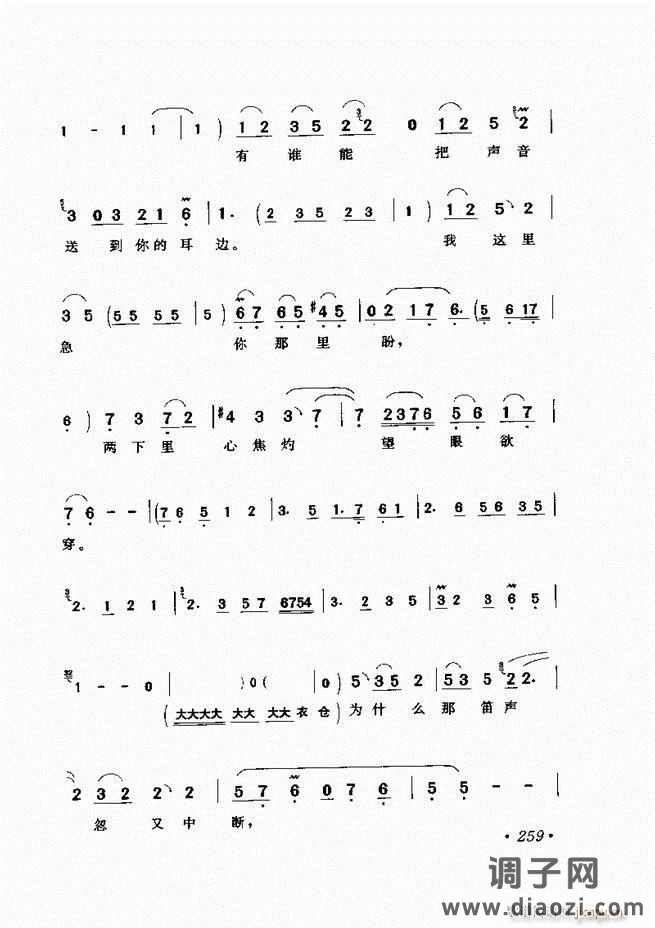 1 - 1 1 | 1) 1 2 3 5 2 2 0 1 2 5 2 |
有 谁 能 把 声 音
3 0 3 2 1 6 | 1. (2 3 5 2 3 | 1) 1 2 5 2
送 到 你 的 耳 边。 我 这 里
3 5 (5 5 5 5 | 5) 6 7 6 5 #4 5 | 0 2 1 7 6. (5 6 1 7 |
急 你 那 里 盼,
6) 7 3 7 2 | #4 3 3 7 | 7 2 3 7 6 5 6 1 7
两 下 里 心 焦 灼 望 眼 欲
7 6 - - | (7 6 5 1 2 | 3. 5 1. 7 6 1 | 2. 6 5 6 3 5 |
穿。
2. 1 2 1 | 2. 3 5 7 6 7 5 4 | 3. 5 2 3 5 | 3 2 3 6 5 |
1 - - 0 | ) 0 ( | 0) 5 3 5 2 | 5 3 5 2 2.
(大大大大 大大 大大 衣 仓) 为 什 么 那 笛 声
2 3 2 2 2 | 5 7 6 0 7 6 | 5 5 - - |
忽 又 中 断,
·259·
调子网
www.diaozi.com